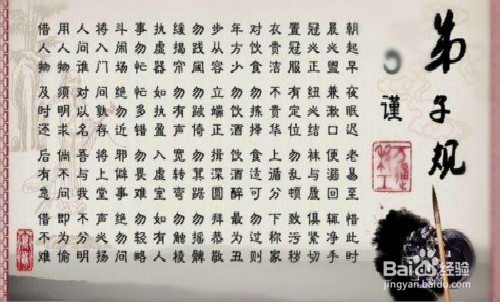 弟子规
谨
朝起早 夜眠迟 老易至 惜此时
晨必盥 兼漱口 便溺回 辄净手
冠必正 纽必结 袜与履 俱紧切
置冠服 有定位 勿乱顿 致污秽
衣贵洁 不贵华 上循分 下称家
对饮食 勿拣择 食适可 勿过则
年方少 勿饮酒 饮酒醉 最为丑
步从容 立端正 揖深圆 拜恭敬
勿践阈 勿跛倚 勿箕踞 勿摇髀
缓揭帘 勿有声 宽转弯 勿触棱
执虚器 如执盈 入虚室 如有人
事勿忙 忙多错 勿畏难 勿轻略
斗闹场 绝勿近 邪僻事 绝勿问
将入门 问孰存 将上堂 声必扬
人问谁 对以名 吾与我 不分明
用人物 须明求 倘不问 即为偷
借人物 及时还 后有急 借不难
Baidu 经验
jingyan.baidu.com